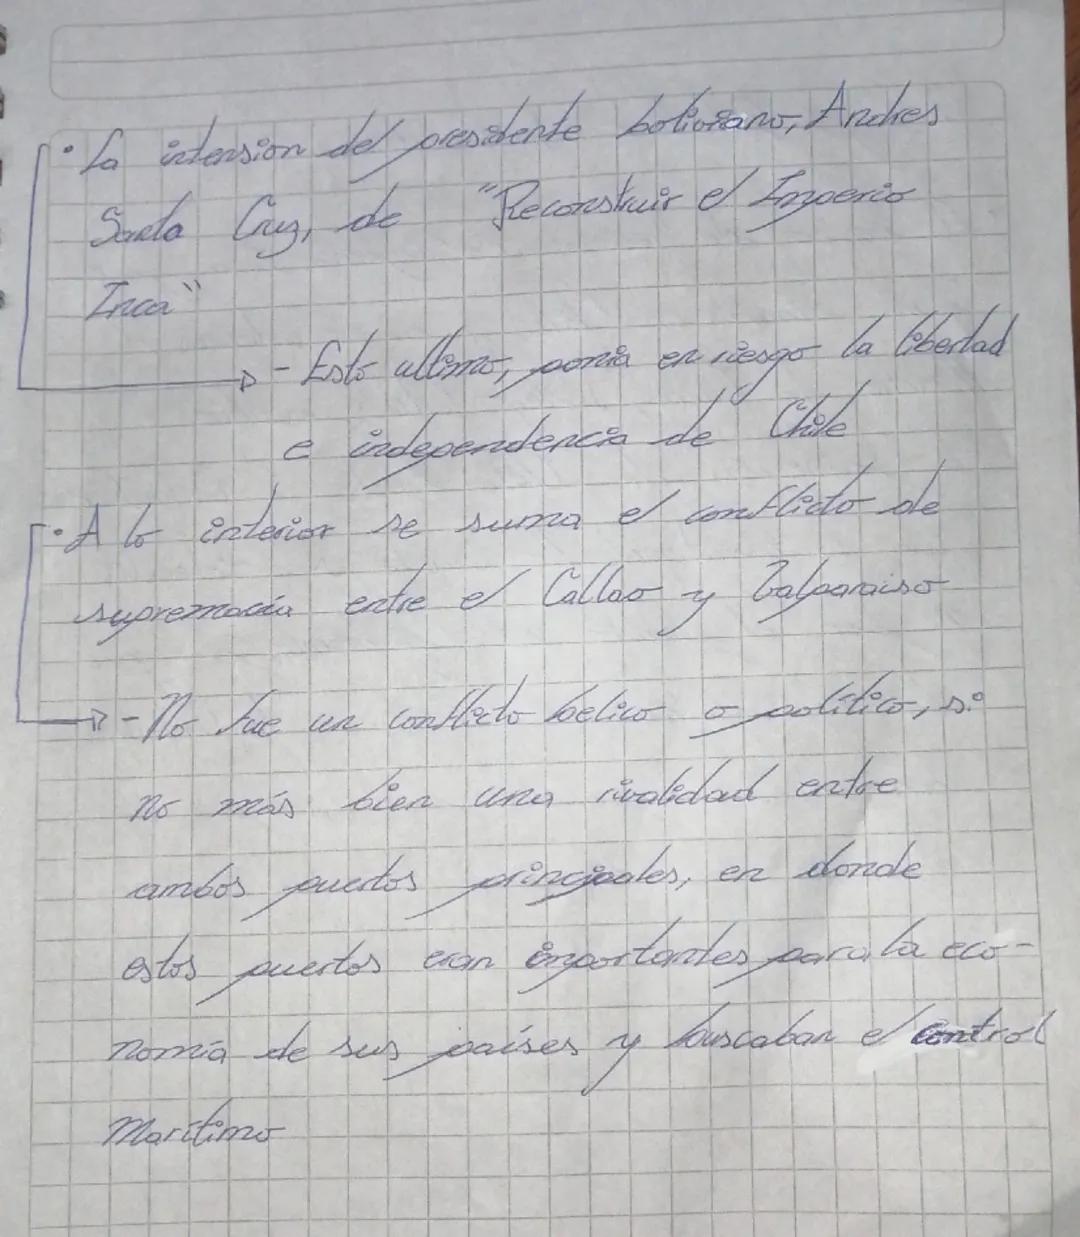 • La intension del presidente boliviano, Andres
Santa Cruz, de "Reconstruir el Imperio
Inca"
- Esto ultimo, ponia en riesgo la libertad
e independencia de Chile
• A lo interior se suma el conflicto de
supremacía entre el Callao y Valparaiso
- No fue un conflicto belico o político, si
no más bien una rivalidad entre
ambos puertos principales, en donde
estos puertos eran importantes para la eco-
nomía de sus países y buscaban el control
Maritimo